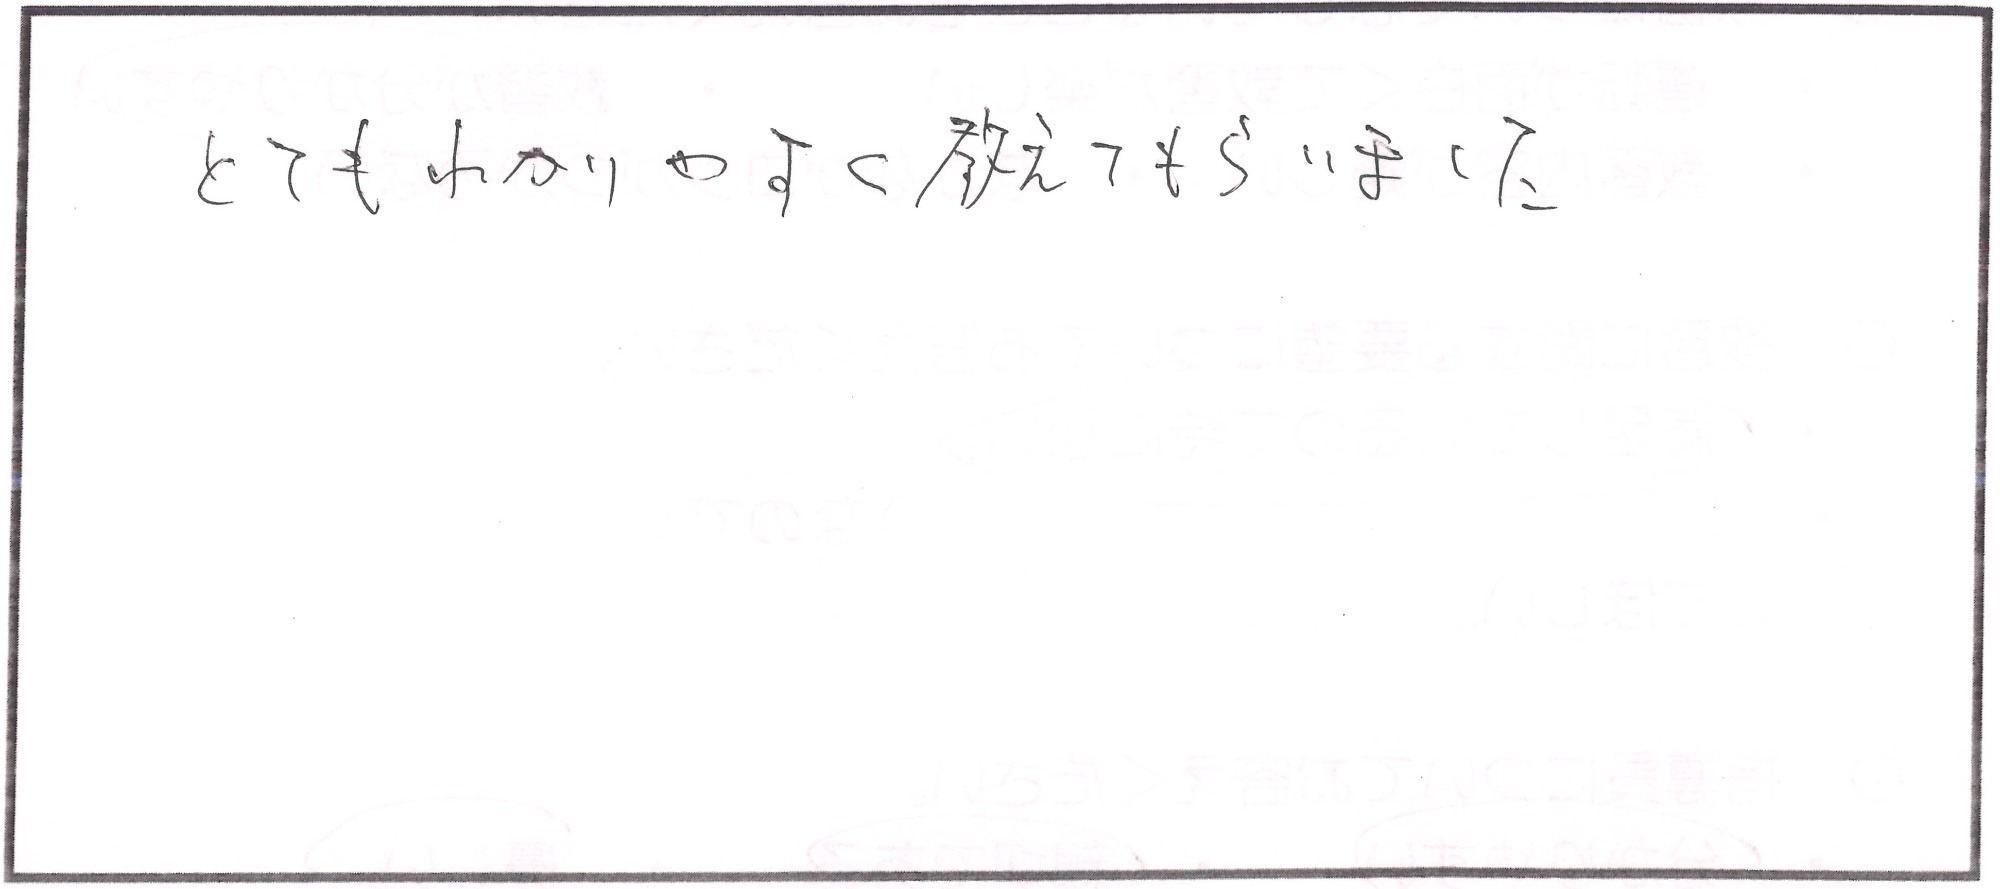 とてもわかりやすく教えてもらいました